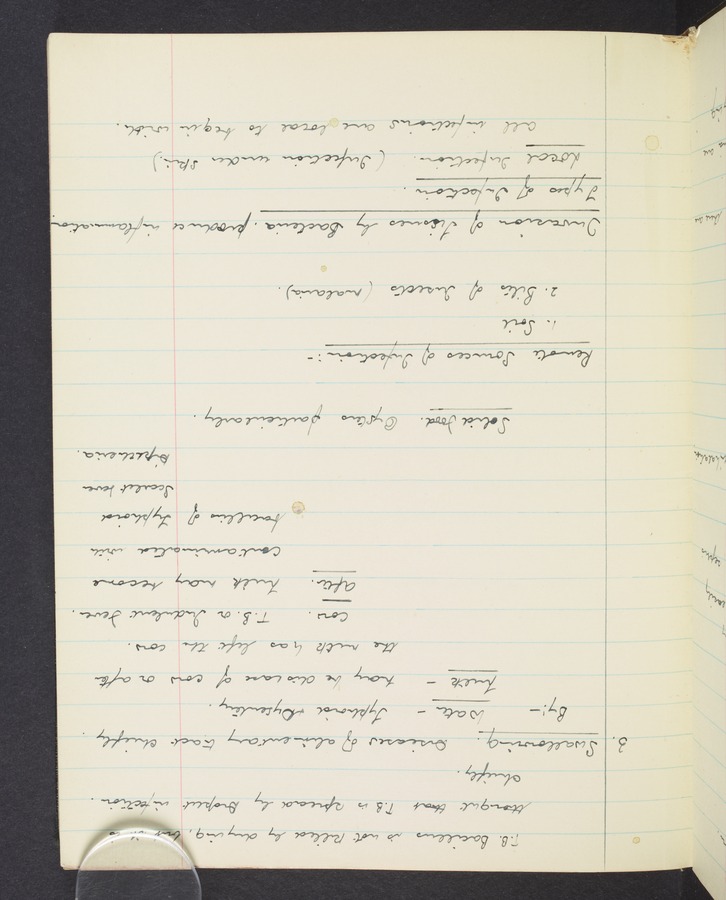 T.B. Bacillus is not killed by drying, but it is
thought that T.B is spread by Droplet infection
chiefly.
3. Swallowing. Diseases of alimentary tract chiefly.
By:- Water - Typhoid & Dysentery.
Milk - may be disease of cow or after
the milk has left the cow.
Cow. T.B. or Undulent Fever.
After. Milk may become
contaminated with
bacillus of Typhoid
Scarlet Fever
Diptheria.
Solid food. Oysters particularly.
Remote Sources of Infection:-
1. Soil
2. Bites of Insects (malaria).
Invasion of Tissues by Bacteria. produce inflammation
Types of Infection.
Local Infection. (Infection under skin)
All infections are local to begin with.